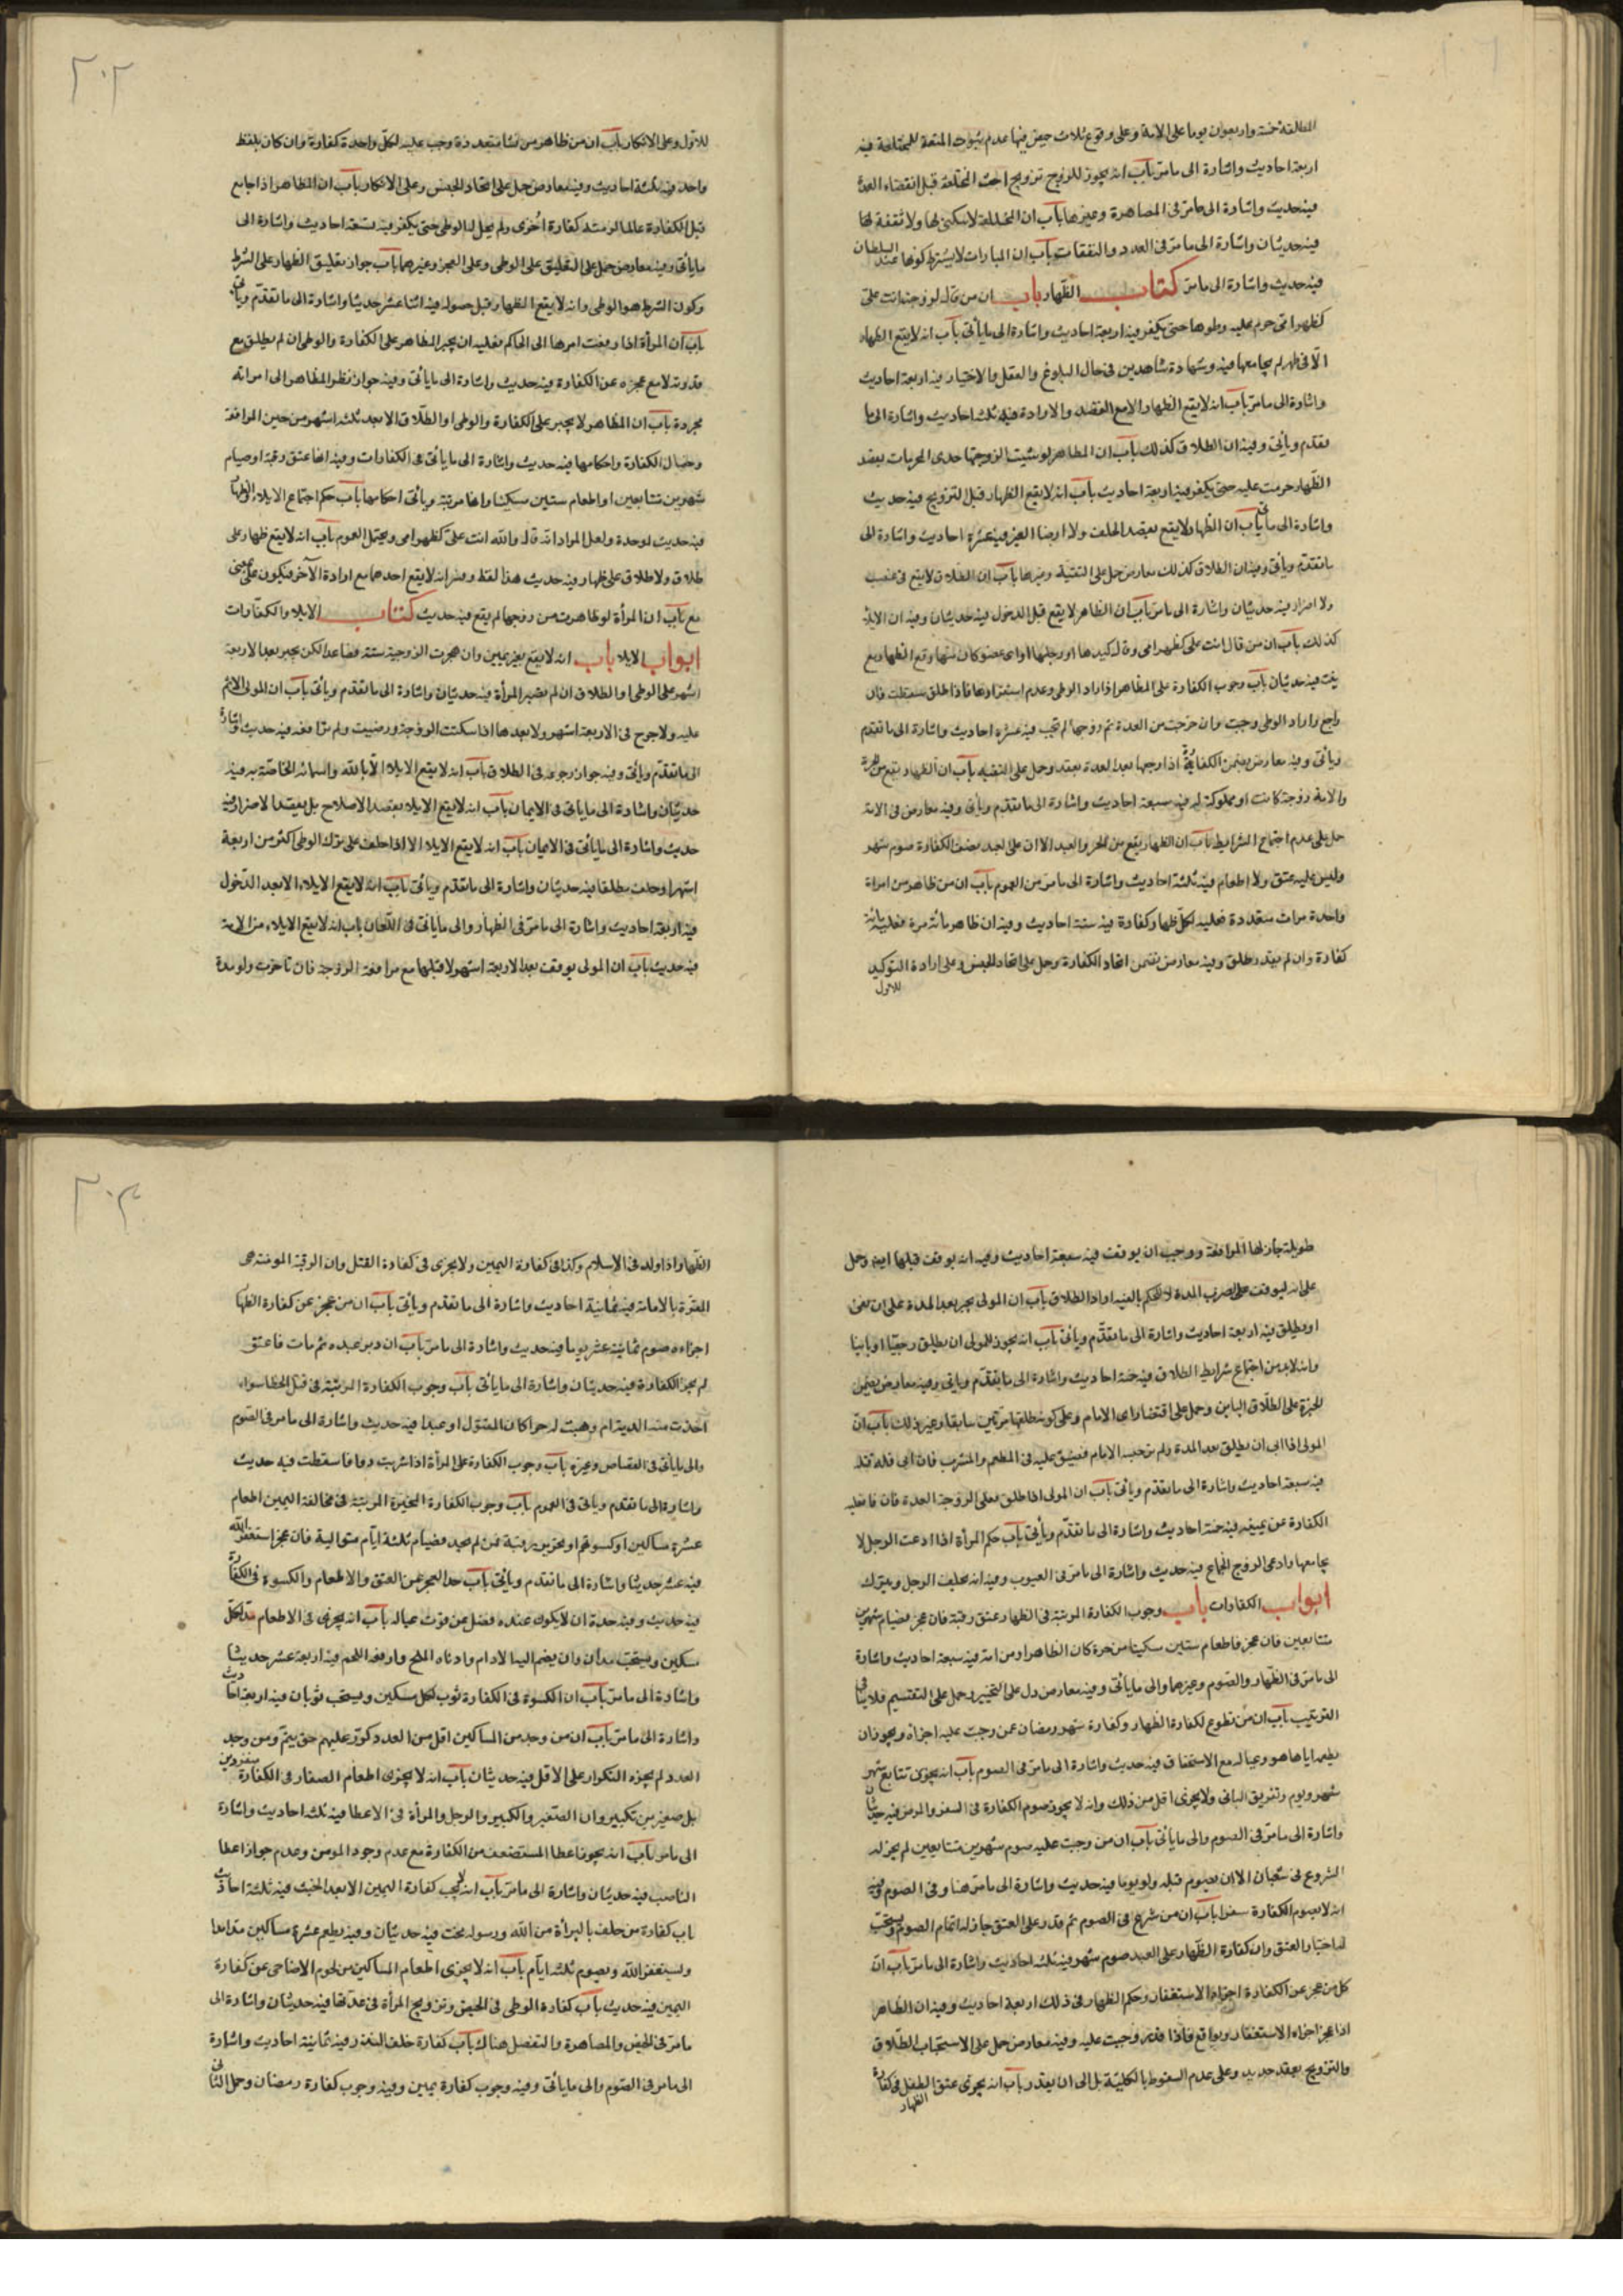 المطلقة خمسة واربعون يوما على الامة وعلى وقوع ثلاث حيض فيها عدم ثبوت المتعة للمختلعة فيه
اربعة احاديث واشارة الى ما مرّ باب انه يجوز للزوج تزويج اخت المختلعة قبل انقضاء العدة
فيه حديث واشارة الى ما مرّ فى المصاهرة وغيرها باب ان المختلعة لا سكنى لها ولا نفقة لها
فيه حديثان واشارة الى ما مرّ فى العدد والنفقات باب ان المبارات لا يشترط كونها عند السلطان
فيه حديث واشارة الى ما مرّ كتاب الظهار باب ان من قال لزوجته انت علىّ
كظهر امى حرم عليه وطوها حتى يكفر فيه اربعة احاديث واشارة الى ما يأتى باب انه لا يقع الظهار
الّا فى طهر لم يجامعها فيه وشهادة شاهدين فى حال البلوغ والعقل والاختيار فيه اربعة احاديث
واشارة الى ما مرّ باب انه لا يقع الظهار الا مع القصد والارادة فيه ثلثة احاديث واشارة الى ما
تقدم ويأتى وفيه ان الطلاق كذلك باب ان المظاهر لو شبه الزوجة باحدى المحرمات بقصد
الظهار حرمت عليه حتى يكفر فيه اربعة احاديث باب انه لا يقع الظهار قبل التزويج فيه حديث
واشارة الى ما يأتى باب ان الظهار لا يقع بقصد الحلف ولا ارضا الغير فيه عشرة احاديث واشارة الى
ما تقدّم ويأتى وفيه ان الطلاق كذلك معارض حمل على التقية وغيرها باب ان الظهار لا يقع فى غضب
ولا اضرار فيه حديثان واشارة الى ما مرّ باب ان الظهار لا يقع قبل الدخول فيه حديثان وفيه ان الايلاء
كذلك باب ان من قال انت على كظهر امى وقال كيدها او رجلها او اى عضو كان منها وقع الظهار مع
نيته فيه حديثان باب وجوب الكفارة على المظاهر اذا اراد الوطى وعدم استقرارها فاذا طلق سقطت فان
راجع واراد الوطى وجبت وان خرجت من العدة ثم زوجها لم تجب فيه عشرة احاديث واشارة الى ما تقدم
ويأتى وفيه معارض يتضمن الكفارة اذا زوجها بعد العدة بعقد وحمل على التقية باب ان الظهار يقع من الحرة
والامة زوجة كانت او مملوكة له فيه سبعة احاديث واشارة الى ما تقدم ويأتى وفيه معارض فى الامة
حمل على عدم اجتماع الشرايط باب ان الظهار يقع من الحر والعبد الا ان على العبد نصف الكفارة صوم شهر
وليس عليه عتق ولا اطعام فيه ثلثة احاديث واشارة الى ما مرّ من العموم باب ان من ظاهر من امراة
واحدة مرات متعددة فعليه لكلّ ظهار كفارة فيه ستة احاديث وفيه ان ظاهر مائة مرة فعليه مائة
كفارة وان لم يقدر طلق وفيه معارض يتضمن اتحاد الكفارة وحمل على اتحاد الجنس وعلى ارادة التوكيد
للاول
٢٠٢
للاوّل وعلى الانكار باب ان من ظاهر من نساء متعددة وجب عليه لكلّ واحدة كفارة وان كان بلفظ
واحد فيه ثلثة احاديث وفيه معارض حمل على اتحاد الجنس وعلى الانكار باب ان المظاهر اذا جامع
قبل الكفارة عالما لزمته كفارة اخرى ولم يحل له الوطى حتى يكفر فيه تسعة احاديث واشارة الى
ما يأتى وفيه معارض حمل على التعليق على الوطى وعلى العجز وغيرهما باب جواز تعليق الظهار على الشرط
وكون الشرط هو الوطى وانه لا يقع الظهار قبل حصوله فيه اثنا عشر حديثا واشارة الى ما تقدّم ويأتى
باب ان المرأة اذا رفعت امرها الى الحاكم فعليه ان يجبر المظاهر على الكفارة والوطى ان لم يطلق مع
قدرته لا مع عجزه عن الكفارة فيه حديث واشارة الى ما يأتى وفيه جواز نظر المظاهر الى امراته
مجردة باب ان المظاهر لا يجبر على الكفارة والوطى او الطلاق الا بعد ثلثة اشهر من حين المرافعة
وخصال الكفارة واحكامها فيه حديث واشارة الى ما يأتى فى الكفارات وفيه انها عتق رقبة او صيام
شهرين متتابعين او اطعام ستين مسكينا وانها مرتبة ويأتى احكامها باب حكم اجتماع الايلاء والظهار
فيه حديث لوحدة ولعل المراد انه قال والله انت علىّ كظهر امى ويحتمل العموم باب انه لا يقع ظهار على
طلاق ولا طلاق على ظهار فيه حديث هذا لفظه وفسر انه لا يقع احدهما مع ارادة الآخر فيكون على بمعنى
مع باب ان المرأة لو ظاهرت من زوجها لم يقع فيه حديث كتاب الايلاء والكفّارات
ابواب الايلا باب انه لا يقع بغير يمين وان هجرت الزوجة ستة فصاعدا لكن يجبر بعد الاربعة
اشهر على الوطى او الطلاق ان لم تصبر المرأة فيه حديثان واشارة الى ما تقدم ويأتى باب ان المولى لا اثم
عليه ولا حرج فى الاربعة اشهر ولا بعدها اذا سكتت الزوجة ورضيت ولم ترافعه فيه حديث واشارة
الى ما تقدّم ويأتى وفيه جواز رجوعه فى الطلاق باب انه لا يقع الايلا الّا بالله واسمائه الخاصّة به فيه
حديثان واشارة الى ما يأتى فى الايمان باب انه لا يقع الايلا بقصد الاصلاح بل بقصد الاضرار فيه
حديث واشارة الى ما يأتى فى الايمان باب انه لا يقع الايلا الا اذا حلف على ترك الوطى اكثر من اربعة
اشهر او حلف مطلقا فيه حديثان واشارة الى ما تقدم ويأتى باب انه لا يقع الايلاء الا بعد الدّخول
فيه اربعة احاديث واشارة الى ما مرّ فى الظهار والى ما يأتى فى اللّعان باب انه لا يقع الايلاء من الامة
فيه حديث باب ان المولى يوقف بعد الاربعة اشهر لا قبلها مع مرافعة الزوجة فان تأخرت ولو مدة
طويلة جاز لها المرافعة ووجب ان يوقف فيه سبعة احاديث وفيه انه يوقف قبلها ايض وحمل
على انه ليوقف على ضرب المدة لا للحكم بالفيئة او الطلاق باب ان المولى يجبر بعد المدة على ان يفئ
او يطلق فيه اربعة احاديث واشارة الى ما تقدّم ويأتى باب انه يجوز للمولى ان يطلق رجعيّا او باينا
وانه لا بد من اجتماع شرايط الطلاق فيه خمسة احاديث واشارة الى ما تقدّم ويأتى وفيه معارض يتضمن
الجبرة على الطلاق الباين وحمل على اقتضاء راى الامام وعلى كونه طلقها مرتين سابقا وغير ذلك باب انّ
المولى اذا ابى ان يطلق بعد المدة ولم يئ حبسه الامام فيضيق عليه فى المطعم والمشرب فان ابى فله قتله
فيه سبعة احاديث واشارة الى ما تقدم ويأتى باب ان المولى اذا طلق فعلى الزوجة العدة فان فا فعليه
الكفارة عن يمينه فيه خمسة احاديث واشارة الى ما تقدّم ويأتى باب حكم المرأة اذا ادعت الرجل لا
يجامعها وادعى الزوج الجماع فيه حديث واشارة الى ما مرّ فى العيوب وفيه انه يحلف الرجل ويترك
ابواب الكفارات باب وجوب الكفارة المرتبة فى الظهار عتق رقبة فان عجز فصيام شهرين
متتابعين فان عجز فاطعام ستين مسكينا من حرة كان الظهار او من امة فيه سبعة احاديث واشارة
الى ما مرّ فى الظّهار والصّوم وغيرهما والى ما يأتى وفيه معارض دل على التخيير وحمل على التقسيم فلا ينافى
الترتيب باب ان من تطوع لكفارة الظهار وكفارة شهر رمضان عمن وجبت عليه اجزاه ويجوز ان
يطعم اياها هو وعياله مع الاستحقاق فيه حديث واشارة الى ما مرّ فى الصوم باب انه يجزى تتابع شهر
شهر ويوم وتفريق الباقى ولا يجزى اقل من ذلك وانه لا يجوز صوم الكفارة فى السفر والمرض فيه حديثان
واشارة الى ما مرّ فى الصوم والى ما يأتى باب ان من وجب عليه صوم شهرين متتابعين لم يجز له
الشروع فى شعبان الا ان يصوم قبله ولو يوما فيه حديث واشارة الى ما مرّ هنا وفى الصوم وفيه
انه لا يصوم الكفارة سفرا باب ان من شرع فى الصوم ثم قدر على العتق جاز له اتمام الصوم ويستحبّ
له اختيار العتق وان كفارة الظّهار على العبد صوم شهر وفيه ثلثة احاديث واشارة الى ما مرّ باب انّ
كل من عجز عن الكفارة اجزاه الاستغفار وحكم الظهار فى ذلك اربعة احاديث وفيه ان الظّاهر
اذا عجز اجزاه الاستغفار ويواقع فاذا قدر وجبت عليه وفيه معارض حمل على الاستحباب الطّلاق
والتزويج بعقد جديد وعلى عدم السقوط بالكلية بل الى ان يقدر باب انه يجزى عتق الطفل فى كفارة
الظهار
٢٠٣
الظّهار اذا ولد فى الاسلام وكذا فى كفارة اليمين ولا يجزى فى كفارة القتل وان الرقبة المومنة هى
المقرّة بالامامة فيه ثمانية احاديث واشارة الى ما تقدم ويأتى باب ان من عجز عن كفارة الظهار
اجزاه صوم ثمانية عشر يوما فيه حديث واشارة الى ما مرّ باب ان دبر عبده ثم مات فاعتق
لم يجز الكفارة فيه حديثان واشارة الى ما يأتى باب وجوب الكفارة المرتبة فى قتل الخطا سواء
اخذت منه الدية ام وهبت له حرا كان المقتول او عبدا فيه حديث واشارة الى ما مر فى الصّوم
والى ما يأتى فى القصاص وغيره باب وجوب الكفارة على المرأة اذا شربت دوا فاسقطت فيه حديث
واشارة الى ما تقدم ويأتى فى العموم باب وجوب الكفارة المخيرة المرتبة فى مخالفة اليمين اطعام
عشرة مساكين او كسوتهم او تحرير رقبة فمن لم يجد فصيام ثلثة ايّام متوالية فان عجز استغفر الله
فيه عشر حديثا واشارة الى ما تقدم ويأتى باب حد العجز عن العتق والاطعام والكسوة فى الكفارة
فيه حديث وفيه حدة ان لا يكون عنده فضل عن قوت عياله باب انه يجزى فى الاطعام مد لكل
مسكين ويستحب مدان وان يضم اليها الادام وادناه الملح وارفعه اللحم فيه اربعة عشر حديثا
واشارة الى ما مرّ باب ان الكسوة فى الكفارة ثوب لكل مسكين ويستحب ثوبان فيه اربعة احاديث
واشارة الى ما مرّ باب ان من وجد من المساكين اقل من العدد كرّر عليهم حتى يتمّ ومن وجد
العدد لم يجزه التكرار على الاقل فيه حديثان باب انه لا يجزى اطعام الصغار فى الكفارة منفردين
بل صغيرين بكبير وان الصّغير والكبير والرجل والمرأة فى الاعطا فيه ثلثة احاديث واشارة
الى ما مر باب انه يجوز اعطا المستضعف من الكفارة مع عدم وجود المومن وعدم جواز اعطا
الناصب فيه حديثان واشارة الى ما مرّ باب انه لا يجب كفارة اليمين الا بعد الحنث فيه ثلثة احاديث
باب كفارة من حلف بالبراة من الله ورسوله فحنث فيه حديثان وفيه يطعم عشرة مساكين مدا مدا
ويستغفر الله ويصوم ثلثة ايّام باب انه لا يجزى اطعام المساكين من لحوم الاضاحى عن كفارة
اليمين فيه حديث باب كفارة الوطى فى الحيض وتزويج المرأة فى عدّتها فيه حديثان واشارة الى
ما مرّ فى الحيض والمصاهرة والتفصيل هناك باب كفارة خلف النذر فيه ثمانية احاديث واشارة
الى ما مر فى الصّوم والى ما يأتى وفيه وجوب كفارة يمين وفيه وجوب كفارة رمضان وحمل الثانى